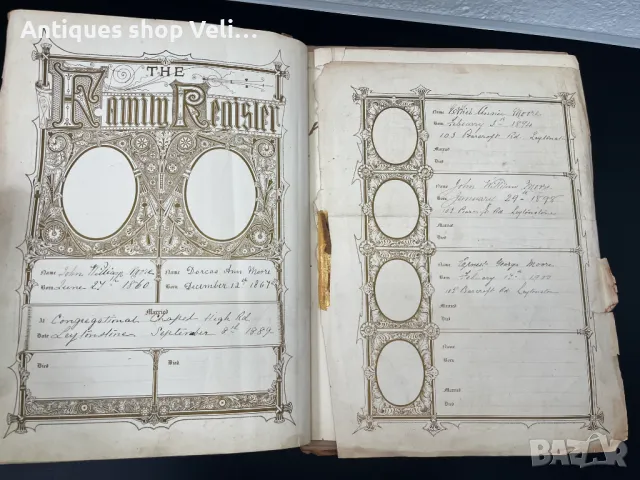 Antiques shop Veli...
THE
Family Register
Name John William Moore Name Dorcas Ann Moore
Born June 27th 1860 Born December 12th 1867
Married
At Congregational Chapel High Rd
Date Leytonstone September 8th 1889
Died Died
Name Moore
Born
103 Rd Leytonstone
Married
Died
Name John William Moore
Born January 24th 1898
Rd Leytonstone
Married
Died
Name Ernest George Moore
Born
Rd Leytonstone
Married
Died
Name
Born
Married
Died
BAZAR